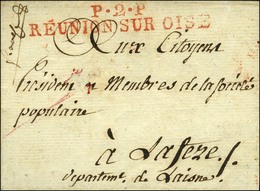 P.2.P
RÉUNION SUR OISE
Aux Citoyens
Président & Membres de la Société
populaire
à Lafere
departem.t de Laisne